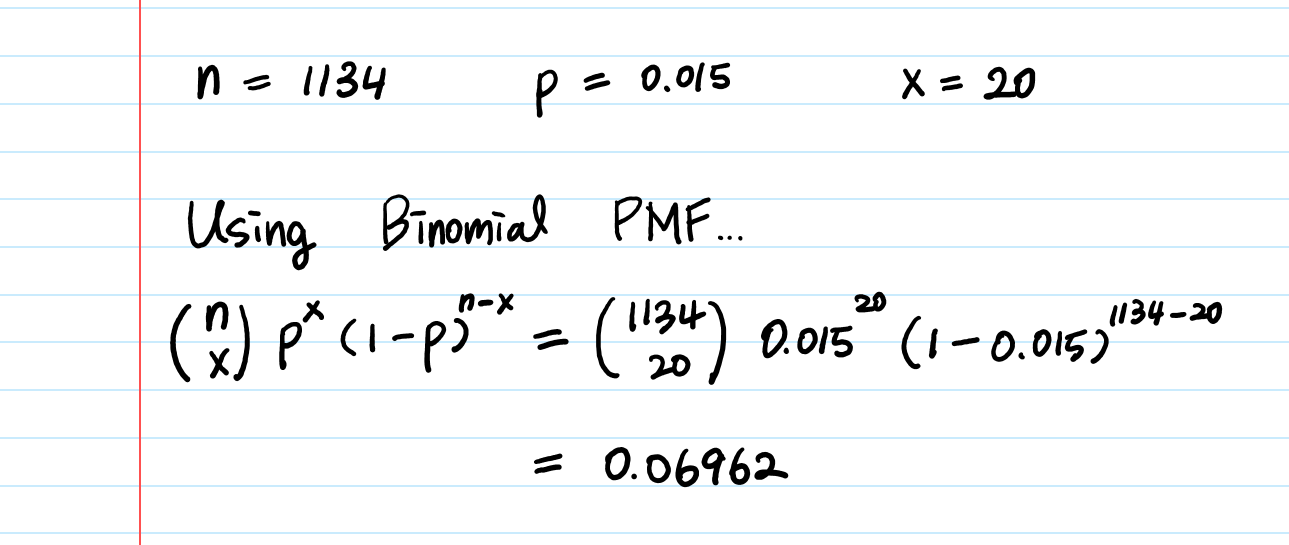 n = 1134 p = 0.015 x = 20
Using Binomial PMF...
(n x) p^x (1-p)^n-x = (1134 20) 0.015^20 (1-0.015)^1134-20
= 0.06962